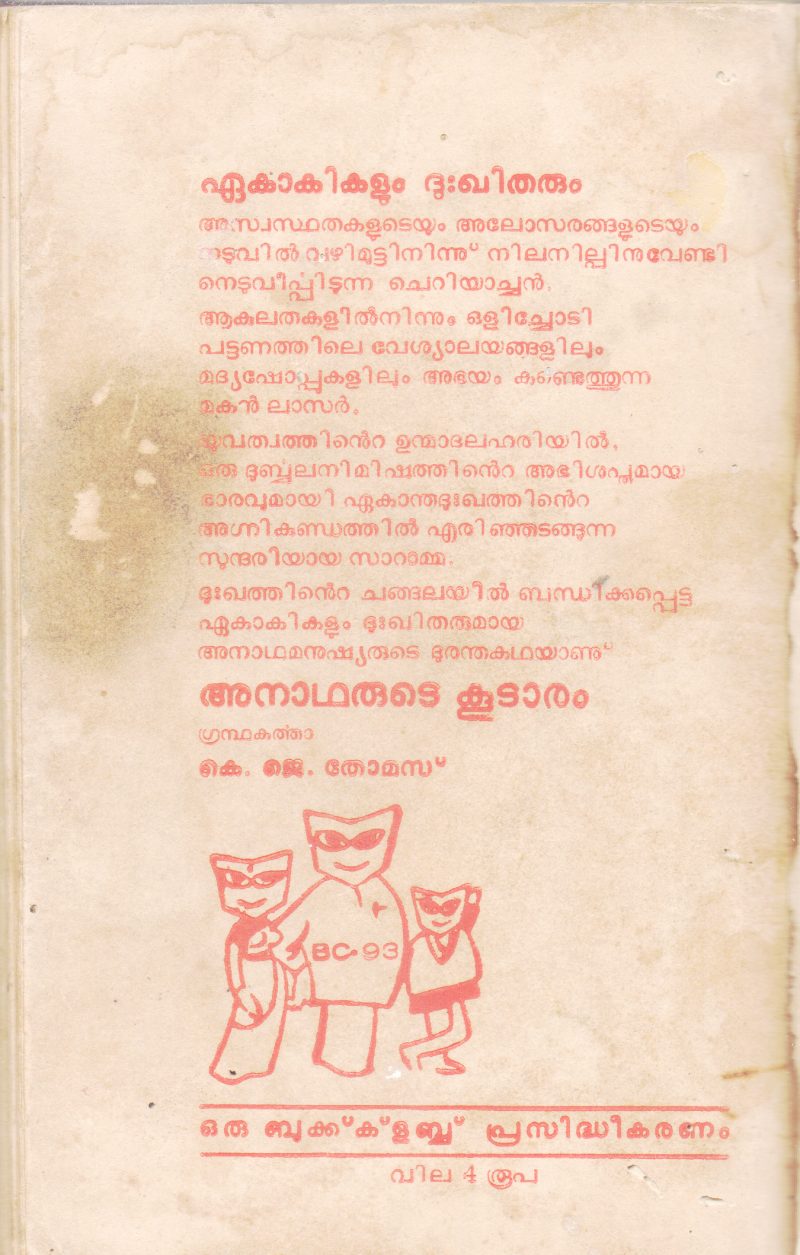 ഏകാകികളും ദുഃഖിതരും
അസ്വസ്ഥതകളുടെയും അലോസരങ്ങളുടെയും
നടുവിൽ വഴിമുട്ടിനിന്ന് നിലനില്പിനുവേണ്ടി
നെടുവീർപ്പിടുന്ന ചെറിയാച്ചൻ.
ആകുലതകളിൽനിന്നും ഒളിച്ചോടി
പട്ടണത്തിലെ വേശ്യാലയങ്ങളിലും
മദ്യഷോപ്പുകളിലും അഭയം കണ്ടെത്തുന്ന
മകൻ ലാസർ.
യുവത്വത്തിൻെറ ഉന്മാദലഹരിയിൽ,
ഒരു ദുർബ്ബലനിമിഷത്തിൻെറ അഭിശപ്തമായ
ഭാരവുമായി ഏകാന്തദുഃഖത്തിൻെറ
അഗ്നികുണ്ഡത്തിൽ എരിഞ്ഞടങ്ങുന്ന
സുന്ദരിയായ സാറാമ്മ.
ദുഃഖത്തിൻെറ ചങ്ങലയിൽ ബന്ധിക്കപ്പെട്ട
ഏകാകികളും ദുഃഖിതരുമായ
അനാഥമനുഷ്യരുടെ ദുരന്തകഥയാണു്
അനാഥരുടെ കൂടാരം
ഗ്രന്ഥകർത്താ
കെ. ജെ. തോമസ്
BC-93
ഒരു ബുക്ക്ക്ളബ്ബ് പ്രസിദ്ധീകരണം
വില 4 രൂപ